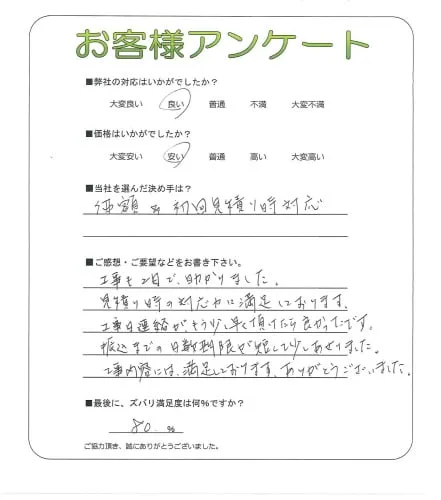 お客様アンケート
■弊社の対応はいかがでしたか?
大変良い 良い 普通 不満 大変不満
■価格はいかがでしたか?
大変安い 安い 普通 高い 大変高い
■当社を選んだ決め手は?
価額 & 初回見積り時対応
■ご感想・ご要望などをお書き下さい。
工事も2日で、助かりました。
見積り時の対応力に満足しております。
工事日連絡がもう少し早く頂けたら良かったです。
振込までの日数期限が短して少しあせりました。
工事内容には、満足しております。ありがとうございました。
■最後に、ズバリ満足度は何%ですか?
80. %
ご協力頂き、誠にありがとうございました。